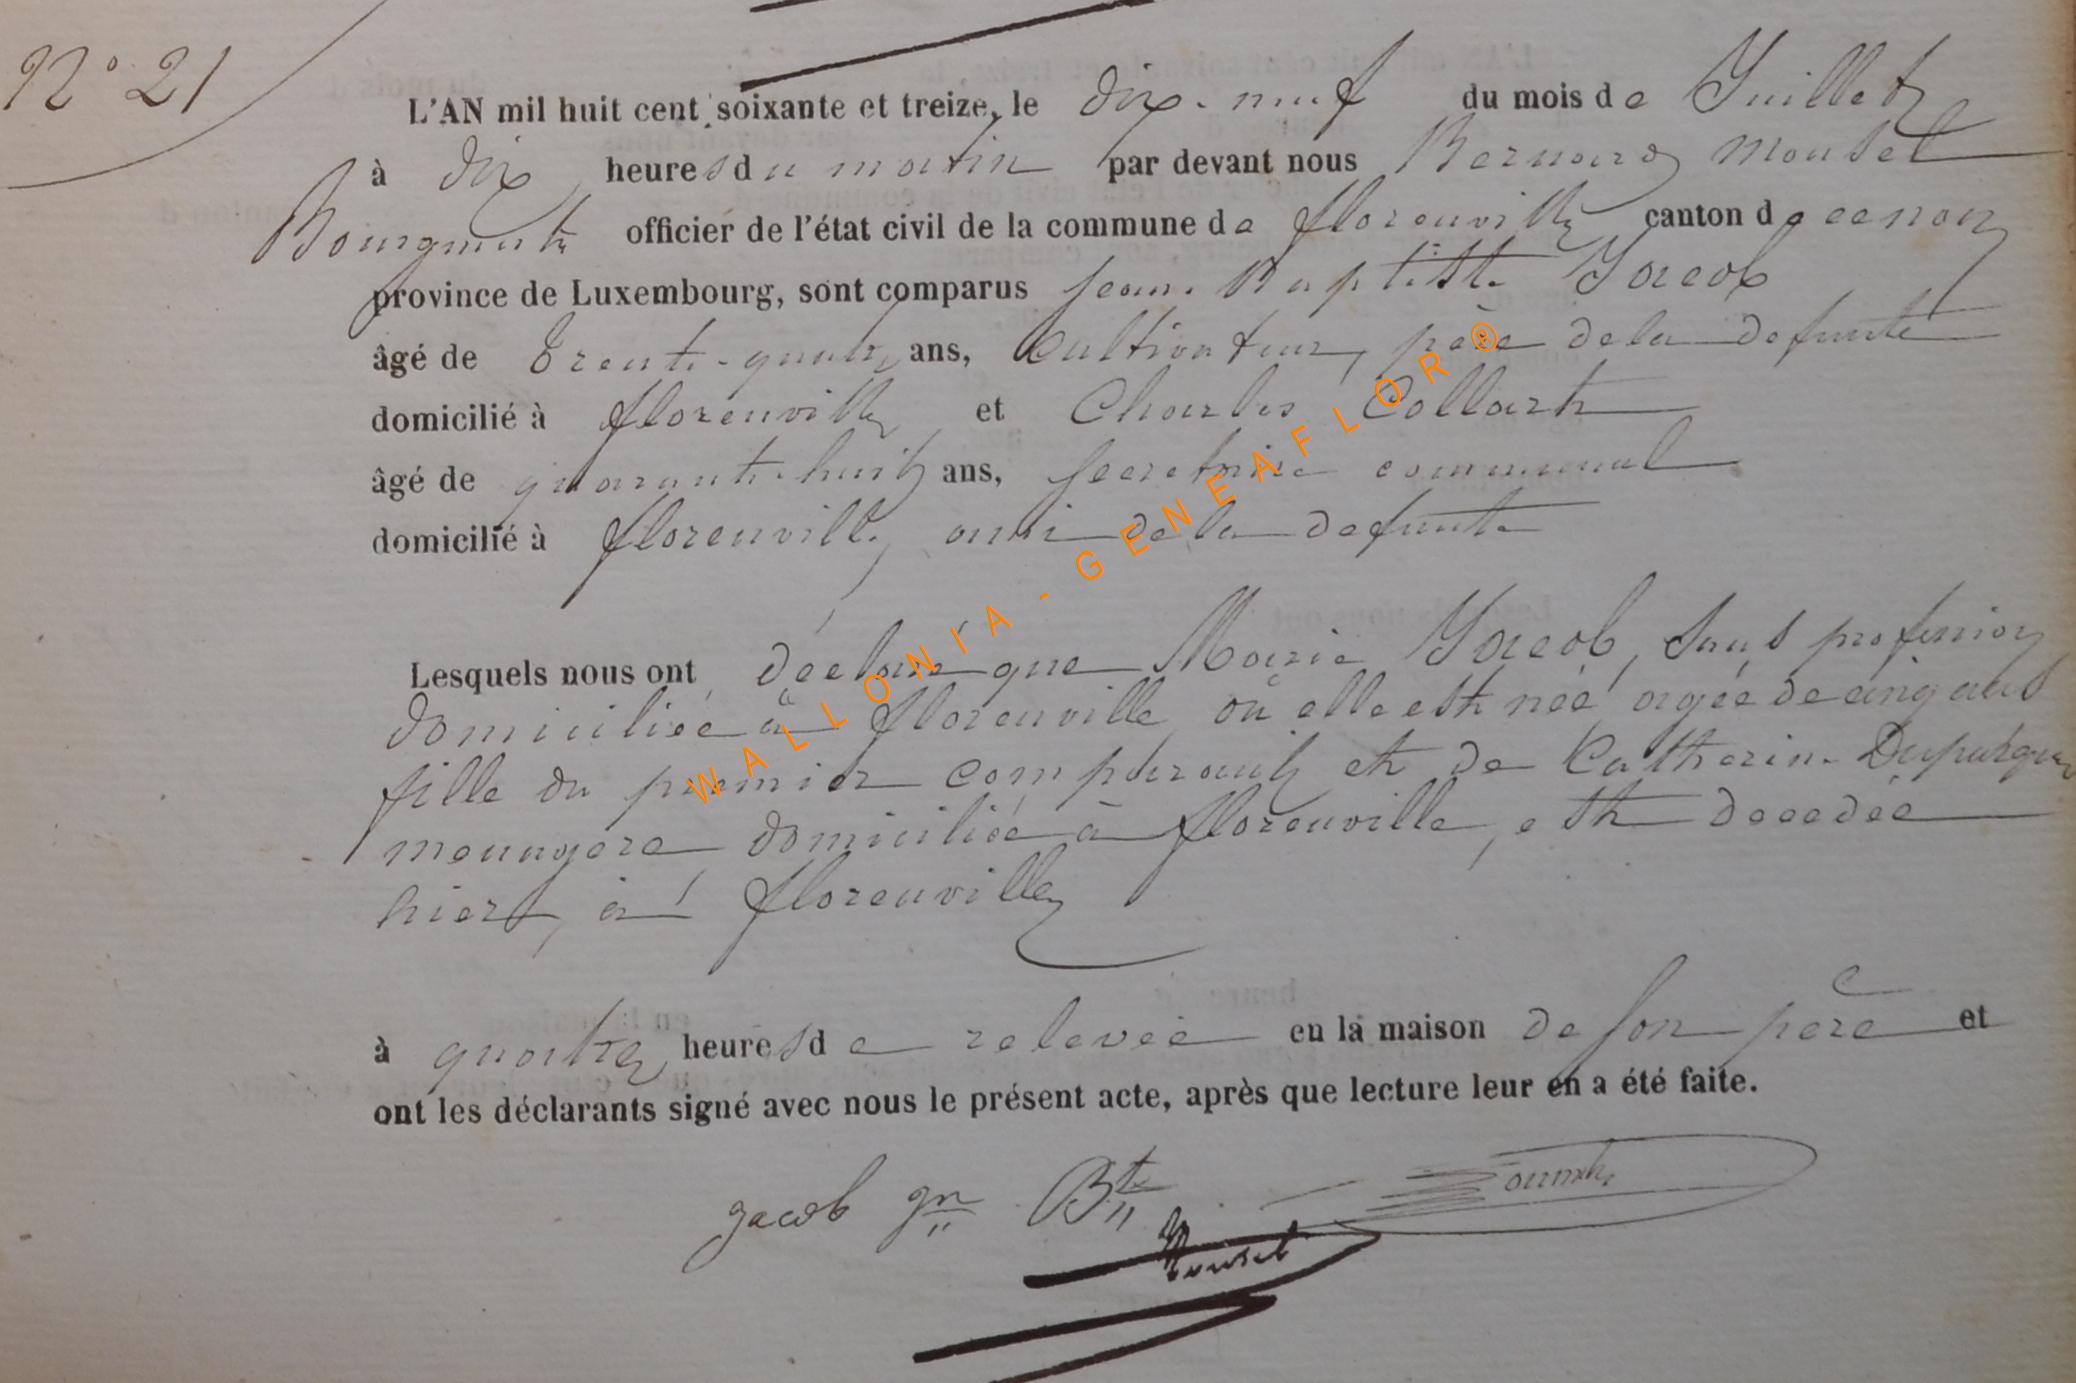 N° 21
L'AN mil huit cent soixante et treize, le dix-neuf du mois de Juillet
à dix heures du matin par devant nous Bernard Mousel
Bourgmestre officier de l'état civil de la commune de florenville canton de ce nom
province de Luxembourg, sont comparus Jean Baptiste Jacob
âgé de Trente-quatre ans, Cultivateur, père de la defunte
domicilié à florenville et Charles Collart
âgé de quarante-huit ans, secretaire communal
domicilié à florenville, ami de la defunte
Lesquels nous ont déclaré que Marie Jacob, sans profession
domiciliée à florenville où elle est née, agée de cinq ans
fille du premier comparant et de Catherine
menagere domiciliée à florenville, est decedée
hier, à florenville
à quatre heures de relevée en la maison de son père et
ont les déclarants signé avec nous le présent acte, après que lecture leur en a été faite.
jacob jn Bte
Mousel
WALLONIA - GENEAFLOR ®